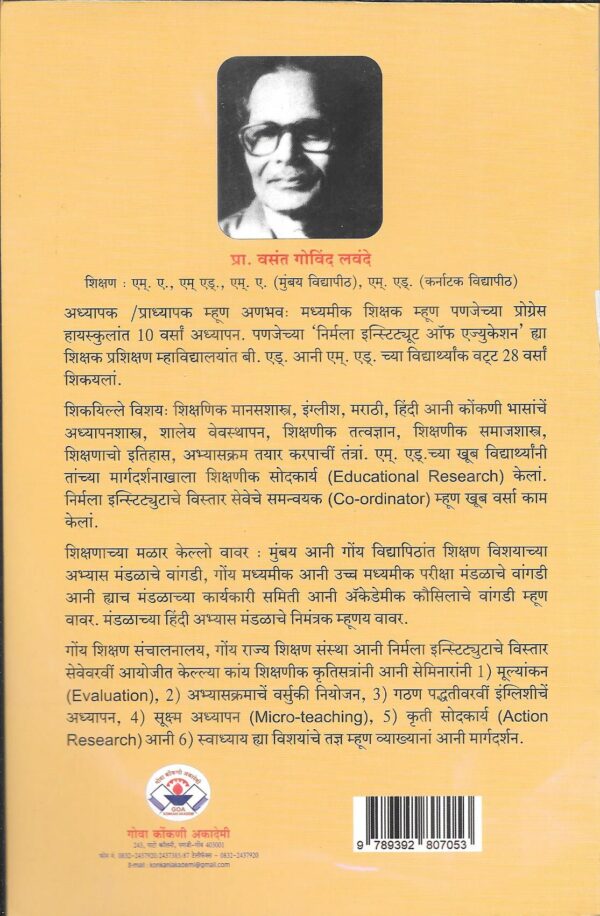 प्रा. वसंत गोविंद लवंदे
शिक्षण : एम्. ए., एम् एड्., एम्. ए. (मुंबय विद्यापीठ), एम्. एड्. (कर्नाटक विद्यापीठ)
अध्यापक /प्राध्यापक म्हूण अणभवः मध्यमीक शिक्षक म्हूण पणजेच्या प्रोग्रेस
हायस्कुलांत 10 वर्सां अध्यापन. पणजेच्या ‘निर्मला इन्स्टिट्यूट ऑफ एज्युकेशन’ ह्या
शिक्षक प्रशिक्षण म्हाविद्यालयांत बी. एड्. आनी एम्. एड्. च्या विद्यार्थ्यांक वट्ट 28 वर्सां
शिकयलां.
शिकयिल्ले विशयः शिक्षणिक मानसशास्त्र, इंग्लीश, मराठी, हिंदी आनी कोंकणी भासांचें
अध्यापनशास्त्र, शालेय वेवस्थापन, शिक्षणीक तत्वज्ञान, शिक्षणीक समाजशास्त्र,
शिक्षणाचो इतिहास, अभ्यासक्रम तयार करपाचीं तंत्रां. एम्. एड्.च्या खूब विद्यार्थ्यांनी
तांच्या मार्गदर्शनाखाला शिक्षणीक सोदकार्य (Educational Research) केलां.
निर्मला इन्स्टिट्युटाचे विस्तार सेवेचे समन्वयक (Co-ordinator) म्हूण खूब वर्सा काम
केलां.
शिक्षणाच्या मळार केल्लो वावर : मुंबय आनी गोंय विद्यापिठांत शिक्षण विशयाच्या
अभ्यास मंडळाचे वांगडी, गोंय मध्यमीक आनी उच्च मध्यमीक परीक्षा मंडळाचे वांगडी
आनी ह्याच मंडळाच्या कार्यकारी समिती आनी ॲकेडेमीक कौंसिलाचे वांगडी म्हूण
वावर. मंडळाच्या हिंदी अभ्यास मंडळाचे निमंत्रक म्हूणय वावर.
गोंय शिक्षण संचालनालय, गोंय राज्य शिक्षण संस्था आनी निर्मला इन्स्टिट्युटाचे विस्तार
सेवेवरवीं आयोजीत केल्ल्या कांय शिक्षणीक कृतिसत्रांनी आनी सेमिनारांनी 1) मूल्यांकन
(Evaluation), 2) अभ्यासक्रमाचें वर्सुकी नियोजन, 3) गठण पद्धतीवरवीं इंग्लिशीचें
अध्यापन, 4) सूक्ष्म अध्यापन (Micro-teaching), 5) कृती सोदकार्य (Action
Research) आनी 6) स्वाध्याय ह्या विशयांचे तज्ञ म्हूण व्याख्यानां आनी मार्गदर्शन.
गोवा कोंकणी अकादेमी
GOA
KONKANI AKADEMI
गोवा कोंकणी अकादेमी
243, पाटो कॉलनी, पणजी-गोंय 403001
फोन नं. 0832-2437920/2437385/87 टेलीफॅक्स - 0832-2437920
E-mail : konkaniakademi@gmail.com
9 789392 807053